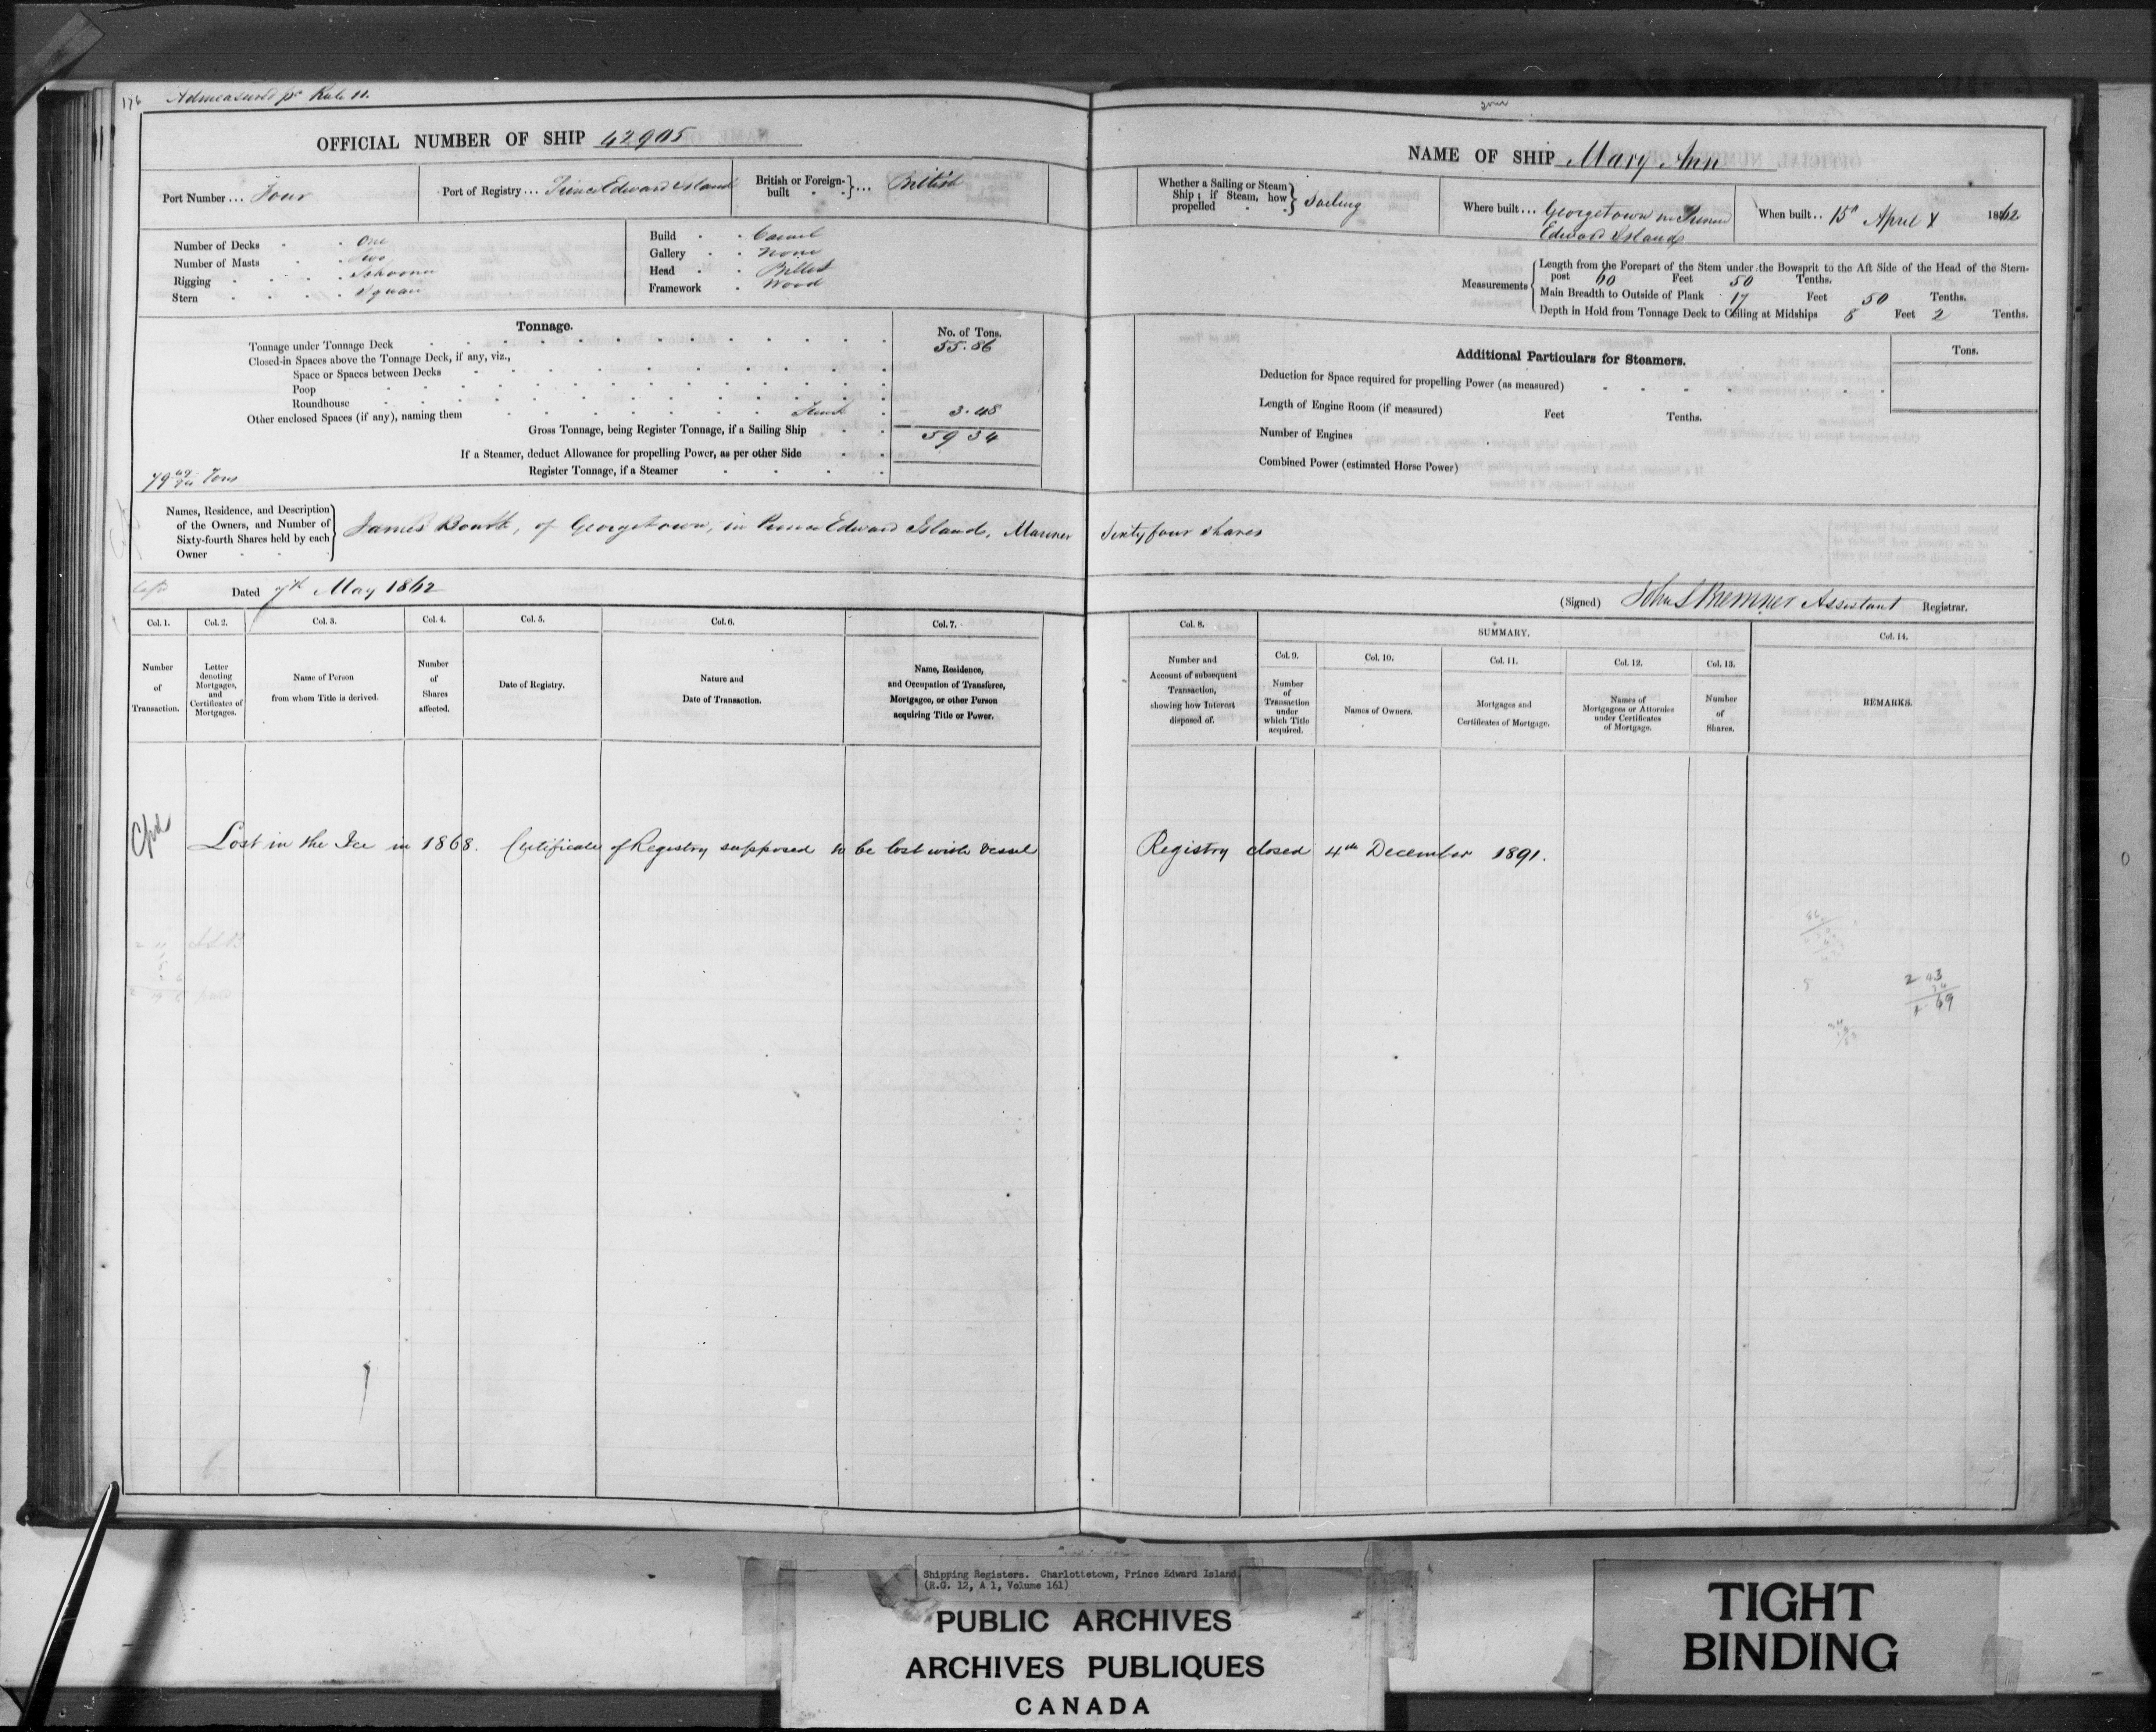 176 Admeasured pr Rule 11.
OFFICIAL NUMBER OF SHIP 42905
Port Number ... Four
Port of Registry ... Prince Edward Island
British or Foreign-built ... British
Number of Decks One
Number of Masts Two
Rigging Schooner
Stern Square
Build Carvel
Gallery None
Head Billet
Framework Wood
Tonnage.
No. of Tons.
Tonnage under Tonnage Deck 55.86
Closed-in Spaces above the Tonnage Deck, if any, viz.,
Space or Spaces between Decks
Poop
Roundhouse
Other enclosed Spaces (if any), naming them Trunk 3.48
Gross Tonnage, being Register Tonnage, if a Sailing Ship 59 34
If a Steamer, deduct Allowance for propelling Power, as per other Side
Register Tonnage, if a Steamer
Tons
Names, Residence, and Description
of the Owners, and Number of
Sixty-fourth Shares held by each
Owner
James Bourk, of Georgetown, in Prince Edward Island, Mariner
Dated 7th May 1862
Col. 1. Col. 2. Col. 3. Col. 4. Col. 5. Col. 6. Col. 7.
Number of Transaction.
Letter denoting Mortgages, and Certificates of Mortgages.
Name of Person from whom Title is derived.
Number of Shares affected.
Date of Registry.
Nature and Date of Transaction.
Name, Residence, and Occupation of Transferee, Mortgagee, or other Person acquiring Title or Power.
Lost in the Ice in 1868. Certificate of Registry supposed to be lost with vessel
NAME OF SHIP Mary Ann
Whether a Sailing or Steam
Ship; if Steam, how
propelled
Sailing
Where built ... Georgetown in Prince
Edward Island
When built .. 15th April 1862
Measurements
Length from the Forepart of the Stem under the Bowsprit to the Aft Side of the Head of the Stern-
post 60 Feet 50 Tenths.
Main Breadth to Outside of Plank 17 Feet 50 Tenths.
Depth in Hold from Tonnage Deck to Ceiling at Midships 8 Feet 2 Tenths.
Additional Particulars for Steamers.
Tons.
Deduction for Space required for propelling Power (as measured)
Length of Engine Room (if measured) Feet Tenths.
Number of Engines
Combined Power (estimated Horse Power)
Sixty four shares
(Signed) John S Bremner Assistant Registrar.
Col. 8. SUMMARY. Col. 14.
Col. 9. Col. 10. Col. 11. Col. 12. Col. 13.
Number and Account of subsequent Transaction, showing how Interest disposed of.
Number of Transaction under which Title acquired.
Names of Owners.
Mortgages and Certificates of Mortgage.
Names of Mortgagees or Attornies under Certificates of Mortgage.
Number of Shares.
REMARKS.
Registry closed 4th December 1891.
Shipping Registers. Charlottetown, Prince Edward Island.
(R.G. 12, A 1, Volume 161)
PUBLIC ARCHIVES
ARCHIVES PUBLIQUES
CANADA
TIGHT
BINDING